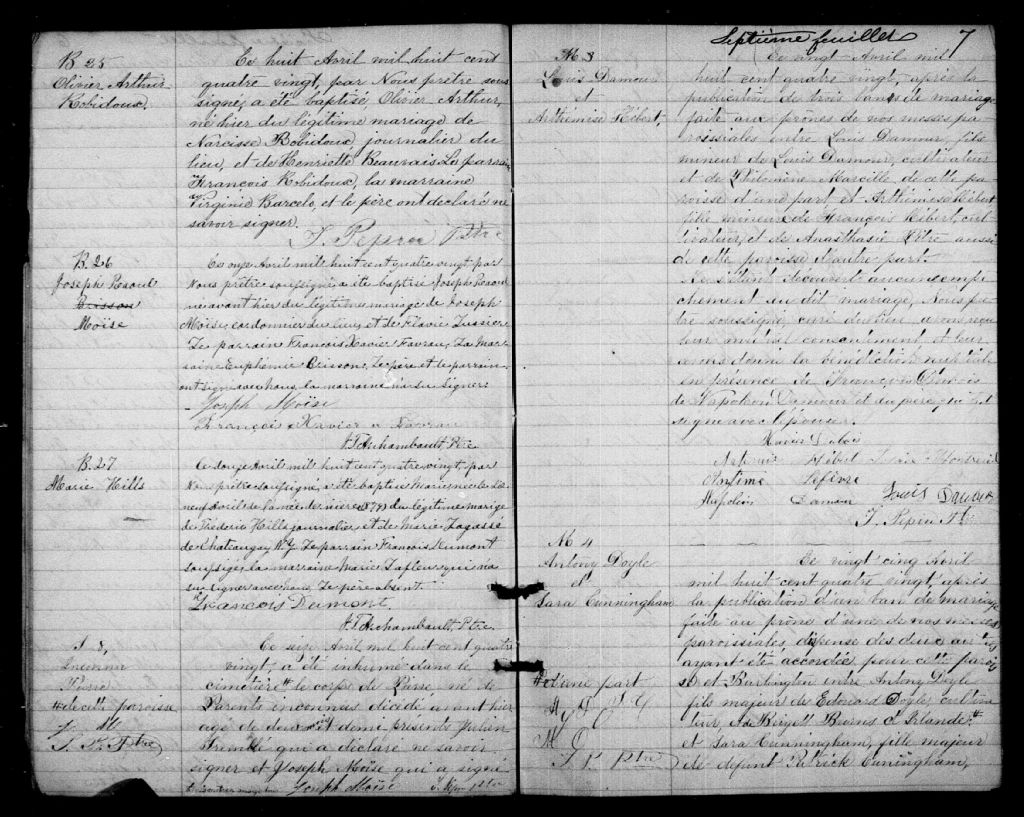 B 25
Olivier Arthur
Robidoux.
Ce huit Avril mil huit cent
quatre vingt, par Nous prêtre sous
signé, a été baptisé, Olivier Arthur,
né hier du légitime mariage de
Narcisse Robidoux, journalier du
lieu, et de Henriette Beauvais. Le parrain
François Robidoux, la marraine
Virginie Barcelo, et le père ont declaré ne
savoir signer.
Ptre
B. 26
Joseph Raoul
Brisson
Moïse
Ce onze Avril mil huit cent quatre vingt par
Nous prêtre soussigné a été baptisé Joseph Raoul
né avant hier du légitime mariage de Joseph
Moïse, cordonnier du lieu, et de Flavie Lussier
Le parrain François Xavier Favrau, La mar
raine Euphémie Brisson. Le père et le parrain
ont signé avec nous, la marraine n'a su signer.
Joseph Moïse
François Xavier Favrau
Archambault, Ptre.
B. 27
Marie Hills
Ce douze Avril mil huit cent quatre vingt, par
Nous prêtre soussigné, a été baptisé Marie née le
neuf Avril de l'année dernière (1879) du légitime mariage
de Fréderic Hills journalier, et de Marie Lagassé
de Chateaugay N.Y. Le parrain François Dumont
soussigné, la marraine Marie Lafleur qui n'a
su signer avec nous. Le père absent.
François Dumont.
Archambault, Ptre.
Pierre
# de cette paroisse
Ptre
Ce seize Avril mil huit cent quatre
vingt, a été inhumé dans le
cimetière # le corps de Pierre, né de
Parents inconnus décidé avant hier
agé de deux et demi présents Julien
Tremblé qui a déclaré ne savoir
signer et Joseph Moïse qui a signé
Joseph Moïse
Septième feuillet 7
M 3
Louis Damour
et
Arthémise Hébert.
Ce vingt Avril mil
huit cent quatre vingt, après la
publication de trois bans de mariage
faite aux prônes de nos messes pa
roissiales entre Louis Damour, fils
mineur de Louis Damour, cultivateur
et de Philomène Marcille de cette pa
roisse d'une part et Arthémise Hébert
fille mineur de François Hébert, cul
tivateur, et de Anasthasie Vitre aussi
de cette paroisse d'autre part.
Ne s'étant découvert aucun empê
chement au dit mariage, Nous prê
tre soussigné, curé du lieu, avons reçu
leur mutuel consentement et leur
avons donné la bénédiction nuptiale
en présence de François
de Napoléon Damour et du père, qui ont
signé avec l'épouse.
Hébert
Antime Lefèvre
Napoléon Damour Louis Damour
M 4
Antony Doyle
et
Sara Cunningham
# d'une part
Ptre
Ce vingt cinq Avril
mil huit cent quatre vingt, après
la publication d'un ban de mariage
faite au prône d'une de nos messes
paroissiales, dispense des deux autres
ayant été accordée pour cette parois
se et Burlington entre Antony Doyle
fils majeur de Edouard Doyle, cultiva
teur, & de Brigett Burns d'Irlande #
et Sara Cunningham, fille majeur
de defunt Patrick Cunningham,